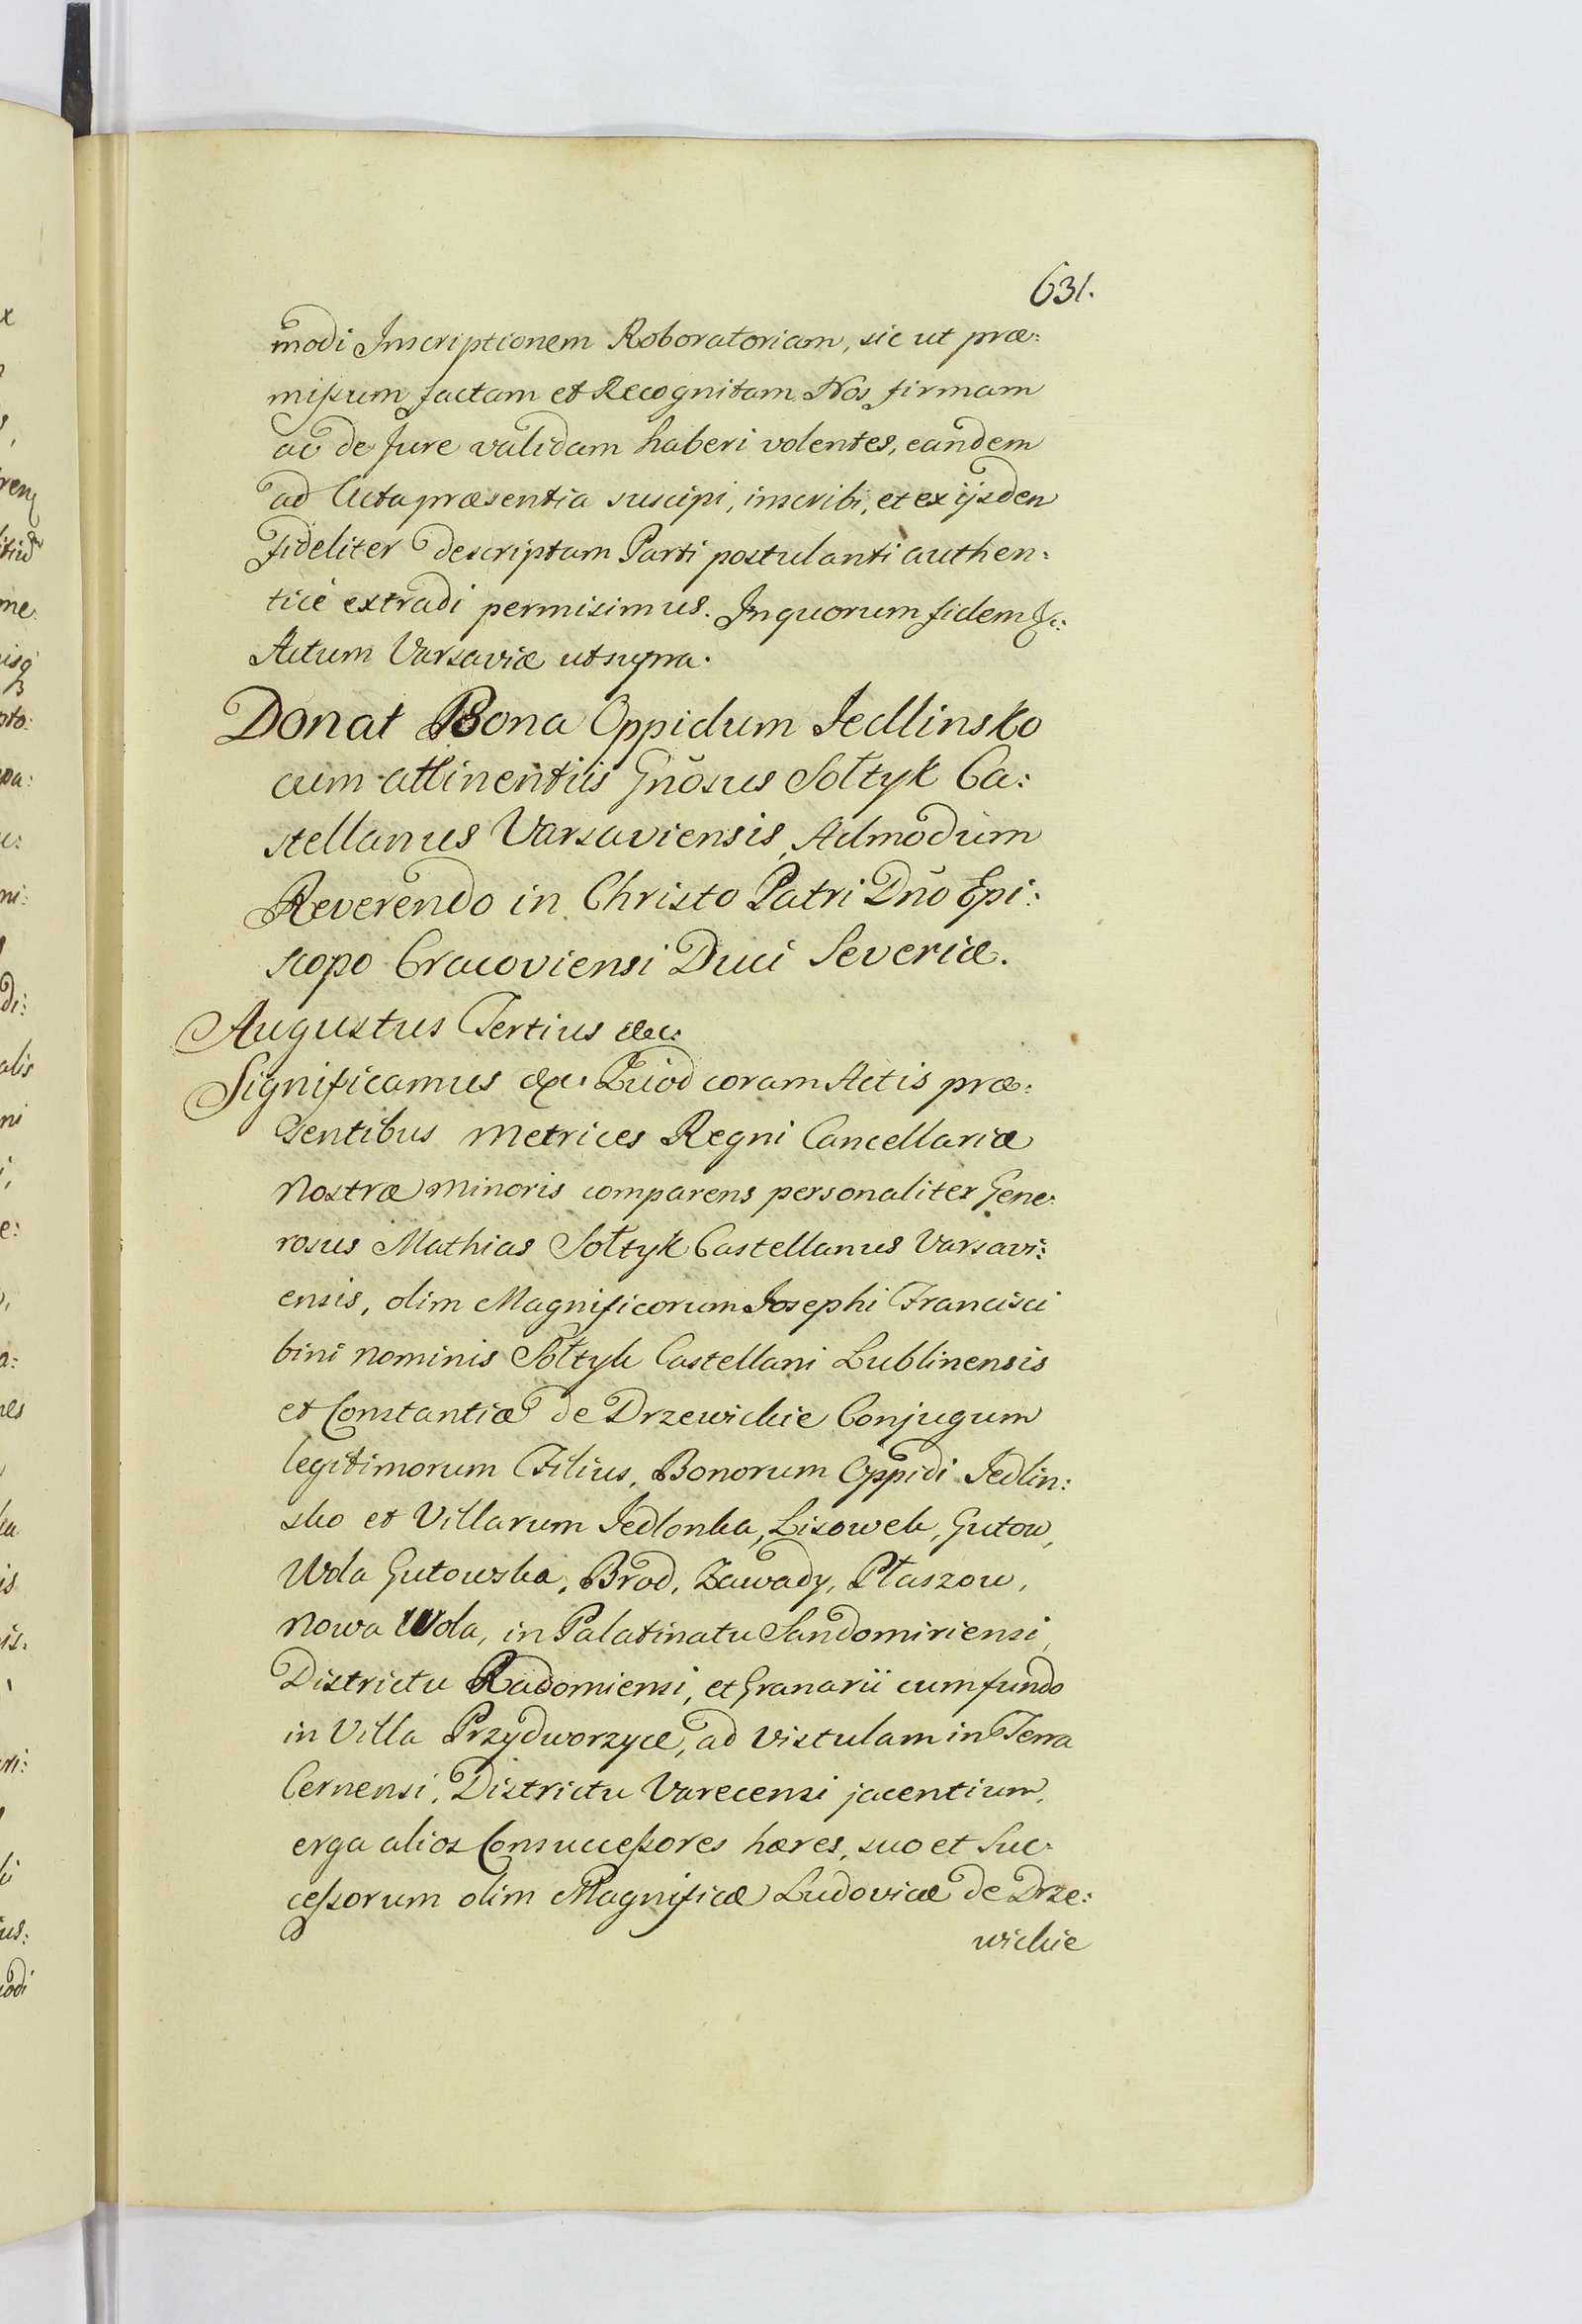 631.
modi Inscriptionem Roboratoriam, sic ut præ:
mißum factam et Recognitam Nos firmam
ac de Jure validam haberi volentes, eandem
ad Acta præsentia suscipi, inscribi, et ex ijsdem
fideliter descriptam Parti postulanti authen:
tice extradi permisimus. In quorum fidem &c:
Actum Varsaviæ ut supra.
Donat Bona Oppidum Jedlinsko
cum attinentiis Gnõsus Sołtyk Ca:
stellanus Varsaviensis, Admodum
Reverendo in Christo Patri Dño Epi:
scopo Cracoviensi Duci Severiæ.
Augustus Tertius &c:
Significamus &c. Quod coram Actis præ:
sentibus Metrices Regni Cancellariæ
Nostræ Minoris comparens personaliter Gene:
rosus Mathias Sołtyk Castellanus Varsavi:
ensis, olim Magnificorum Josephi Francisci
bini nominis Sołtyk Castellani Lublinensis
et Constantiæ de Drzewickie Conjugum
legitimorum Filius, Bonorum Oppidi Jedlin:
sko et Villarum Jedlonka, Lisowek, Gutow,
Wola Gutowska, Brod, Zawady, Płaszow,
Nowa Wola, in Palatinatu Sandomiriensi,
Districtu Radomiensi, et Granarii cum fundo
in Villa Przydworzyce, ad Vistulam in Terra
Cernensi, Districtu Varecensi jacentium,
erga alios Consucceßores hæres, suo et Suc:
ceßorum olim Magnificæ Ludovicæ de Drze:
wickie